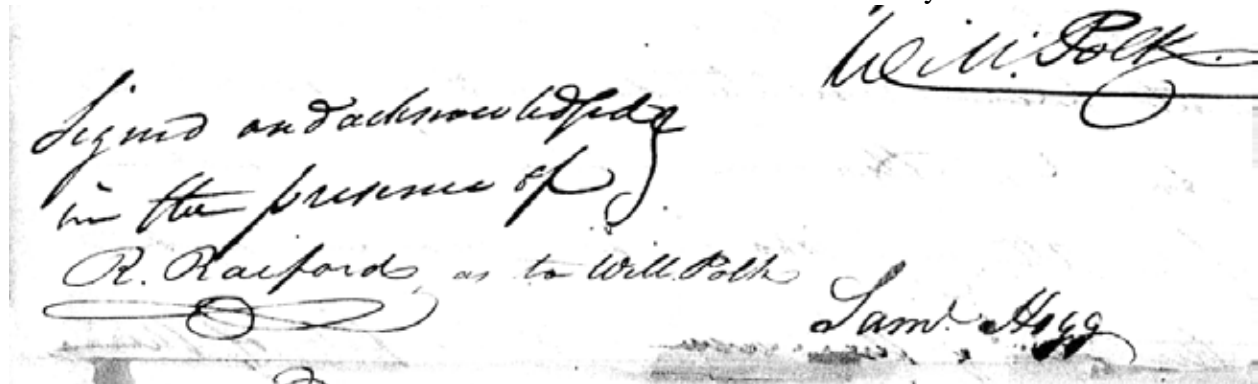 Will. Polk.
Signed and acknowledged
in the presence of
R. Raiford, as to Will. Polk
Saml. Hogg